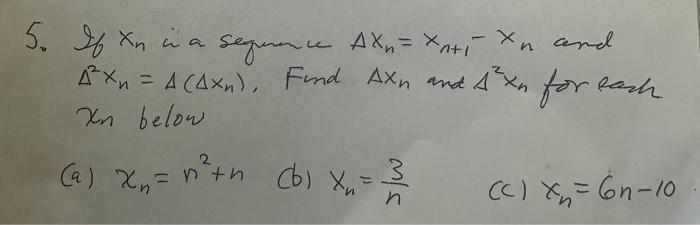 5. If xn is a sequence Δxn = xn+1 - xn and
Δ²xn = Δ(Δxn). Find Δxn and Δ²xn for each
xn below
(a) xn = n²+n (b) xn = 3/n (c) xn = 6n-10